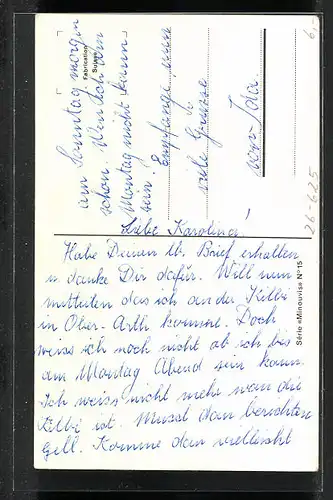 Liebe Karolina!
Habe Deinen lb. Brief erhalten
u danke Dir dafür. Will nun
mitteilen das ich an der Kilbi
in Ober-Arth komme. Doch
weiss ich noch nicht ob ich bis
am Montag Abend sein kann.
Ich weiss nicht mehr wan die
Kilbi ist. Musst dan berichten
gell. Komme dan vielleicht
am Sonntag morgen
schon. Wen ich am
Montag nicht kann
sein. Empfange nun
viele Grüsse
von Ida.
Fabrication
Suisse
Série «Minouvis» N° 15
26-625
6,-